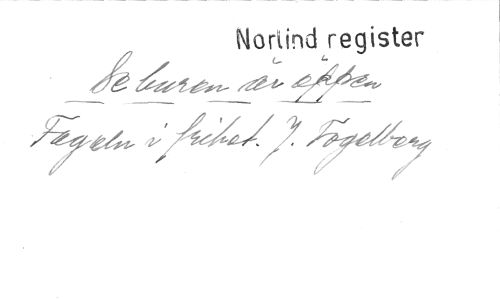 Norlind register
Se buren är öppen
Fageln i frihet. J. Fogelberg